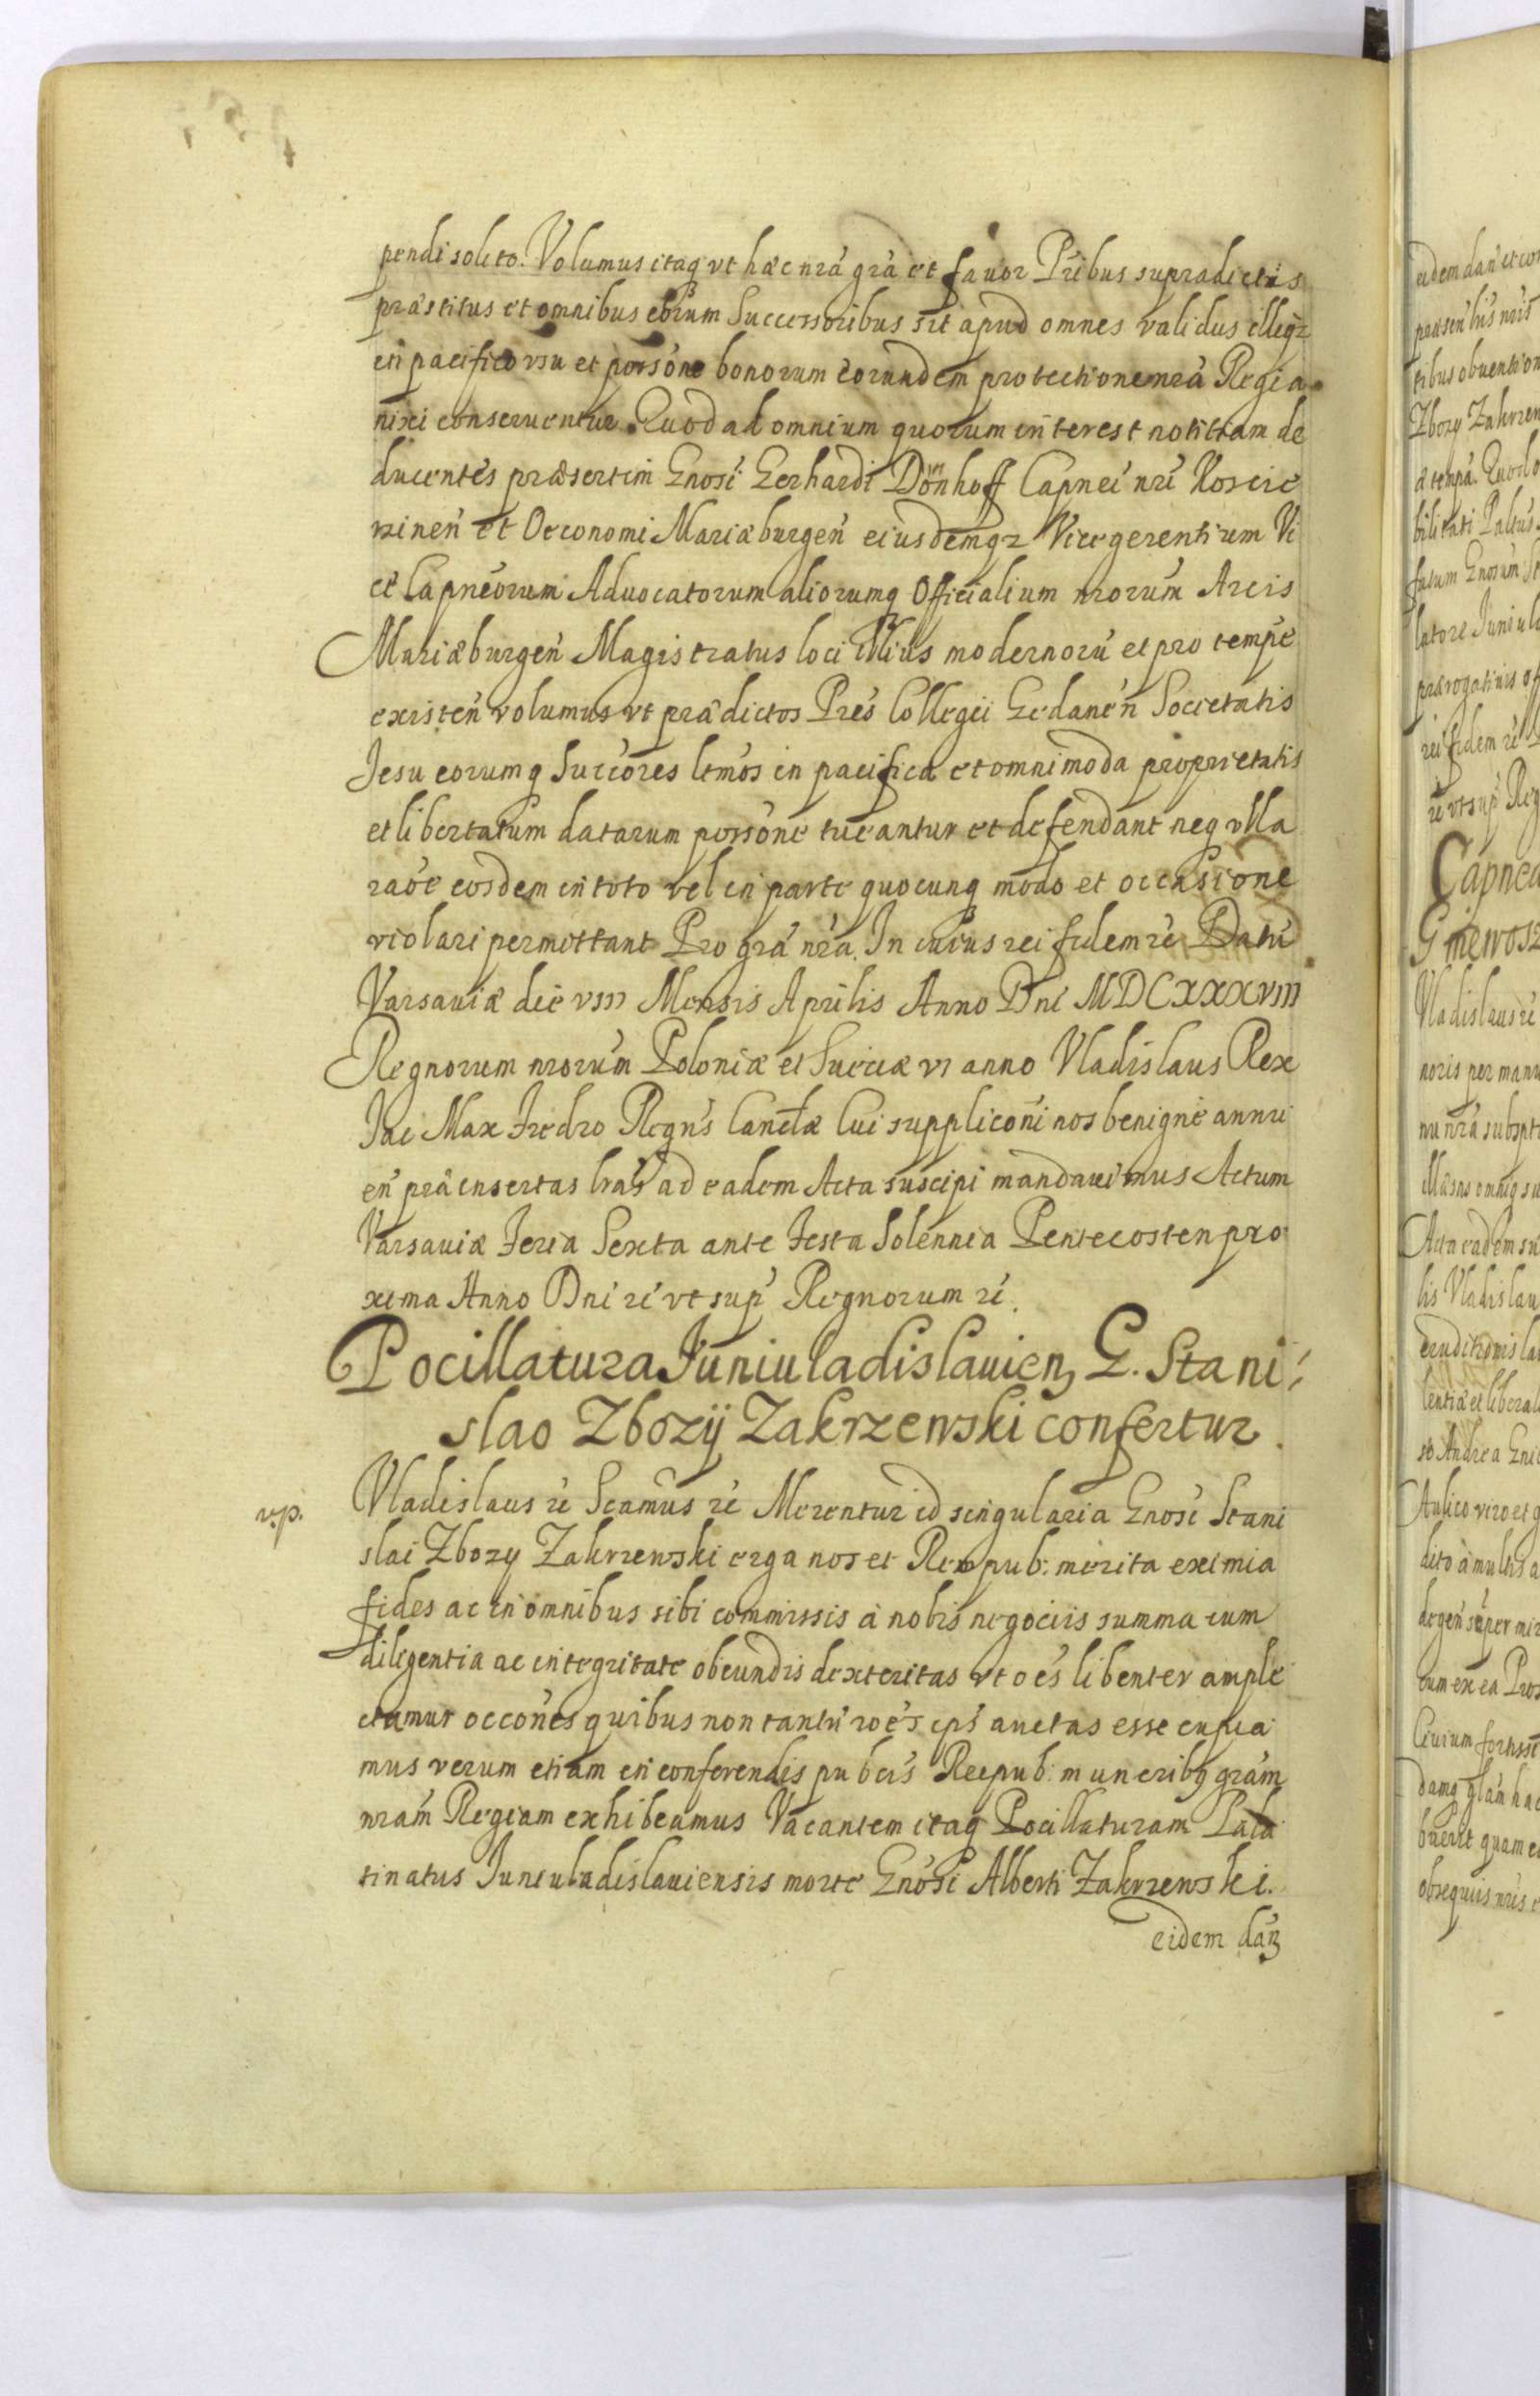 pendi solito. Volumus itaq vt hæc nrá grá et fauor Pribus supradictis
præstitus et omnibus eorum Successoribus sit apud omnes validus illeq
in pacifico vsu et possone bonorum eorundem protectione nrá Regia
nixi conseruentur. Quod ad omnium quorum interest notitiam de
ducentes præsertim Gnosi Gerhardi Dönhoff Capnei nri Koscie
rzinen et Oeconomi Mariæburgen eiusdemq Vicegerentium Vi
ce Capneorum Aduocatorum aliorumq Officialium nrorum Arcis
Mariæburgen Magistratus loci illius modernorú et pro tempe
existen volumus vt prædictos Pres Collegii Gedanen Societatis
Jesu eorumq Succores ltmos in pacifica et omnimoda proprietatis
et libertatum datarum possone tueantur et defendant neq vlla
raoe eosdem in toto vel in parte quocunq modo et occasione
violari permittant Pro grá nrá. In cuius rei fidem ré Datú
Varsauiæ die VIII Mensis Aprilis Anno Dni MDCXXXVIII
Regnorum nrorum Poloniæ et Sueciæ VI anno Vladislaus Rex
Jac Max Fredro Regns Canclæ Cui suppliconi nos benigne annu
en præinsertas lras ad eadem Acta suscipi mandauimus Actum
Varsauiæ Feria Sexta ante Festa Solennia Pentecosten pro
xima Anno Dni ré vt sup Regnorum ré.
Pocillatura Juniuladislauien G. Stani
slao Zbozÿ Zakrzewski confertur.
v.p.
Vladislaus ré Scamus ré Merentur id singularia Gnosi Stani
slai Zbozy Zakrzewski erga nos et Rempub: merita eximia
fides ac in omnibus sibi commissis à nobis negociis summa cum
diligentia ac integritate obeundis dexteritas vt oes libenter ample
ctamur occones quibus non tantú roes ips auctas esse cupia
mus verum etiam in conferendis pubcis Reipub: muneribq gram
nram Regiam exhibeamus Vacantem itaq Pocillaturam Pala
tinatus Juniuladislauiensis morte Gnosi Alberti Zakrzewski.
eidem dan